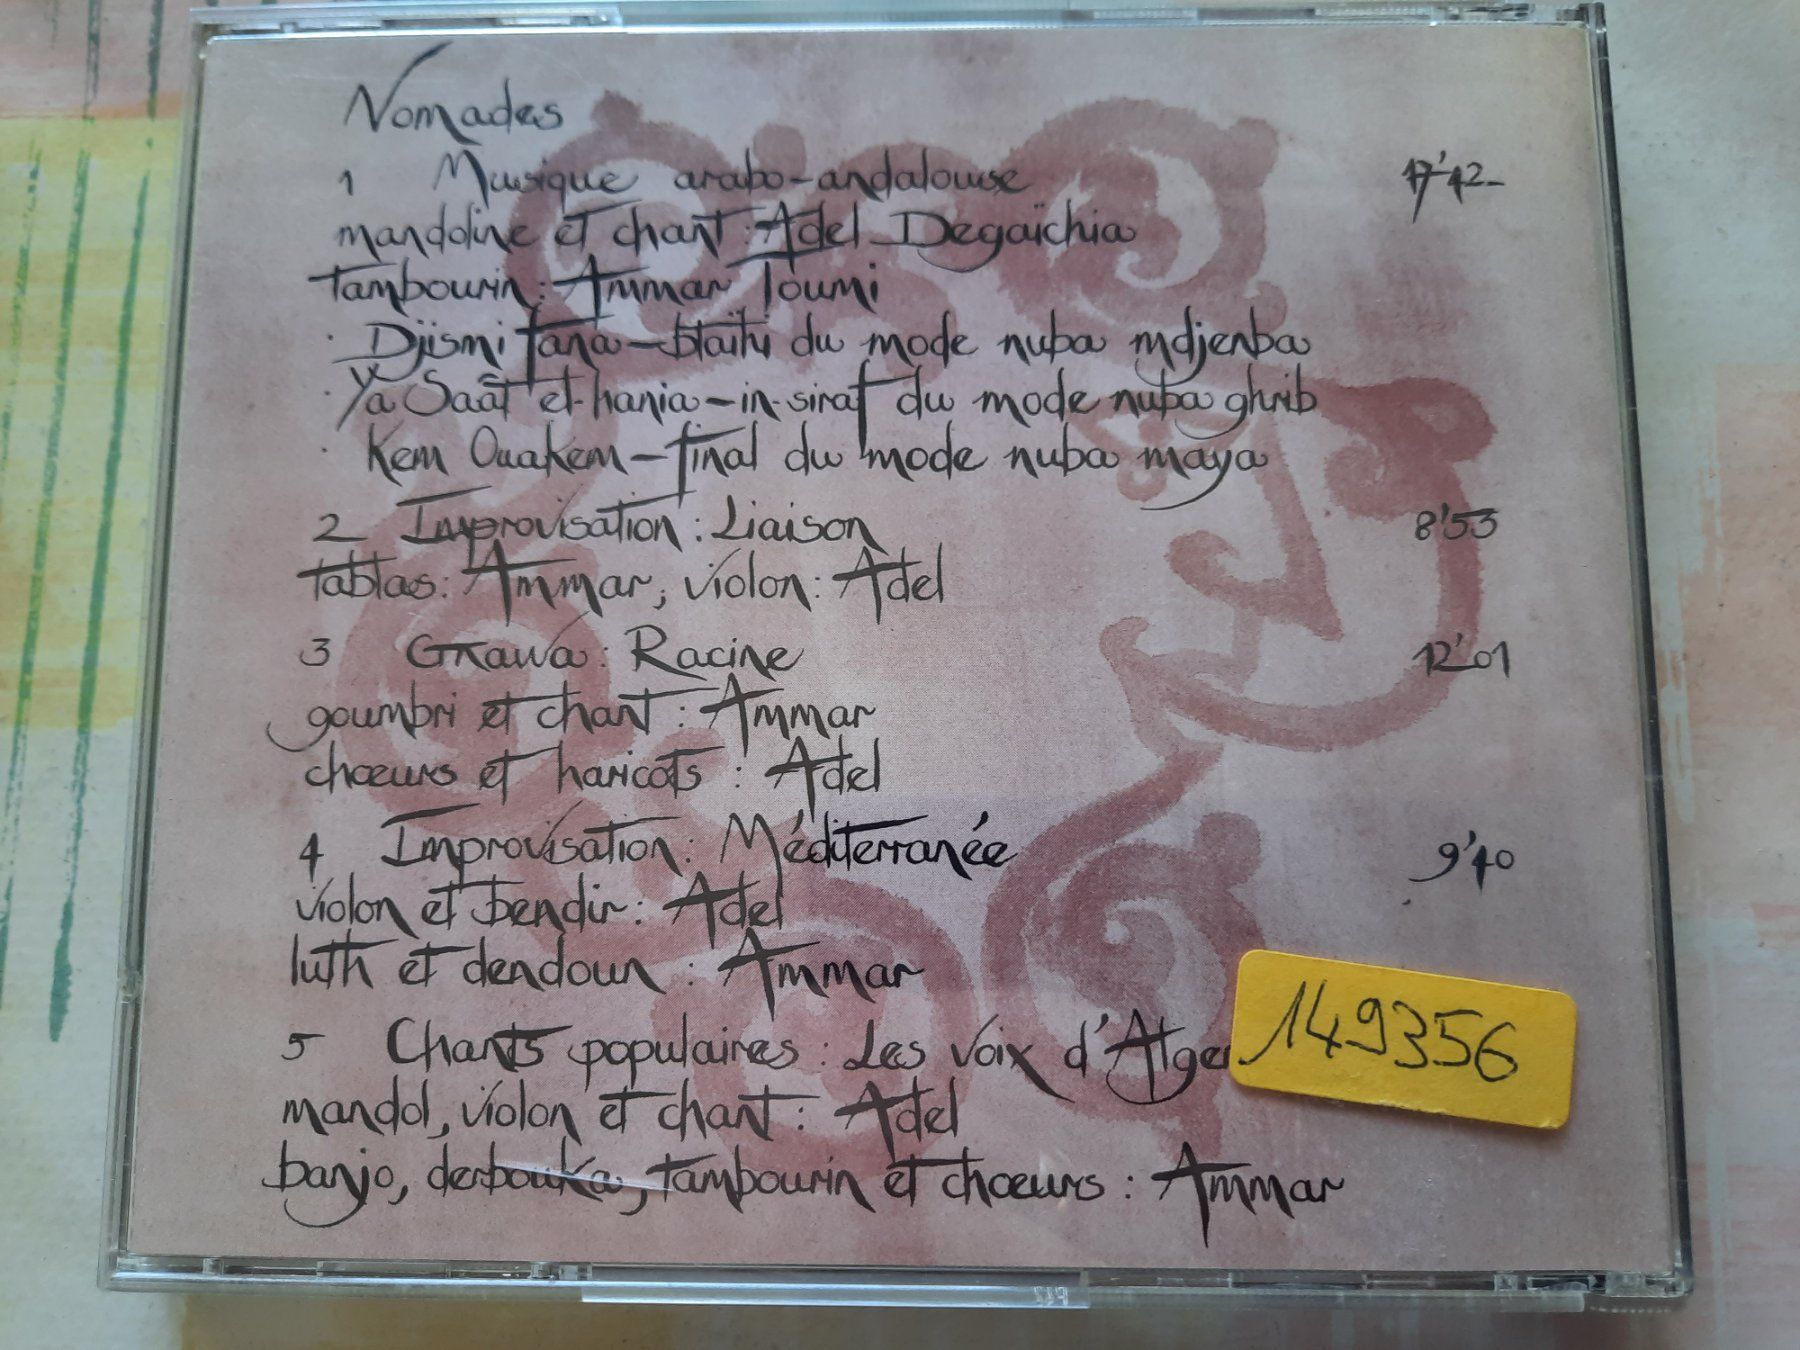 Nomades
1 Musique arabo-andalouse 17'42
mandoline et chant : Adel Degaïchia
tambourin : Ammar Toumi
· Djismi fana - btaïhi du mode nuba mdjenba
· Ya Saât el-hania - in-siraf du mode nuba ghrib
· Kem Ouakem - final du mode nuba maya
2 Improvisation : Liaison 8'53
tablas : Ammar, violon : Adel
3 Gnawa : Racine 12'01
goumbri et chant : Ammar
chœurs et haricots : Adel
4 Improvisation : Méditerranée 9'40
violon et bendir : Adel
luth et dendoun : Ammar
5 Chants populaires : Les voix d'Alger
149356
mandol, violon et chant : Adel
banjo, derbouka, tambourin et chœurs : Ammar